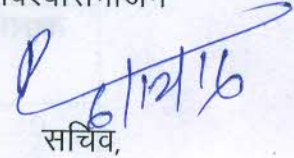 6/12/16
सचिव,